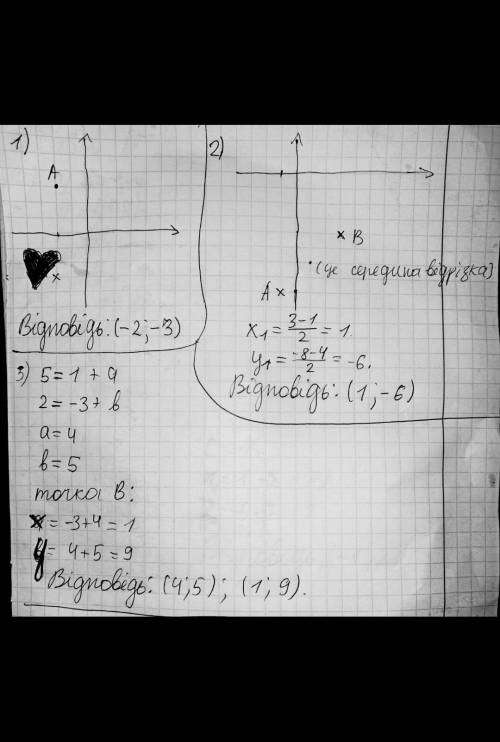 1)
A
Відповідь: (-2; -3)
2)
B
(це середина відрізка)
A
x₁ = 3-1/2 = 1.
y₁ = -8-4/2 = -6.
Відповідь: (1; -6)
3) 5 = 1 + a
2 = -3 + b
a = 4
b = 5
точка B:
x = -3+4 = 1
y = 4+5 = 9
Відповідь: (4; 5); (1; 9).